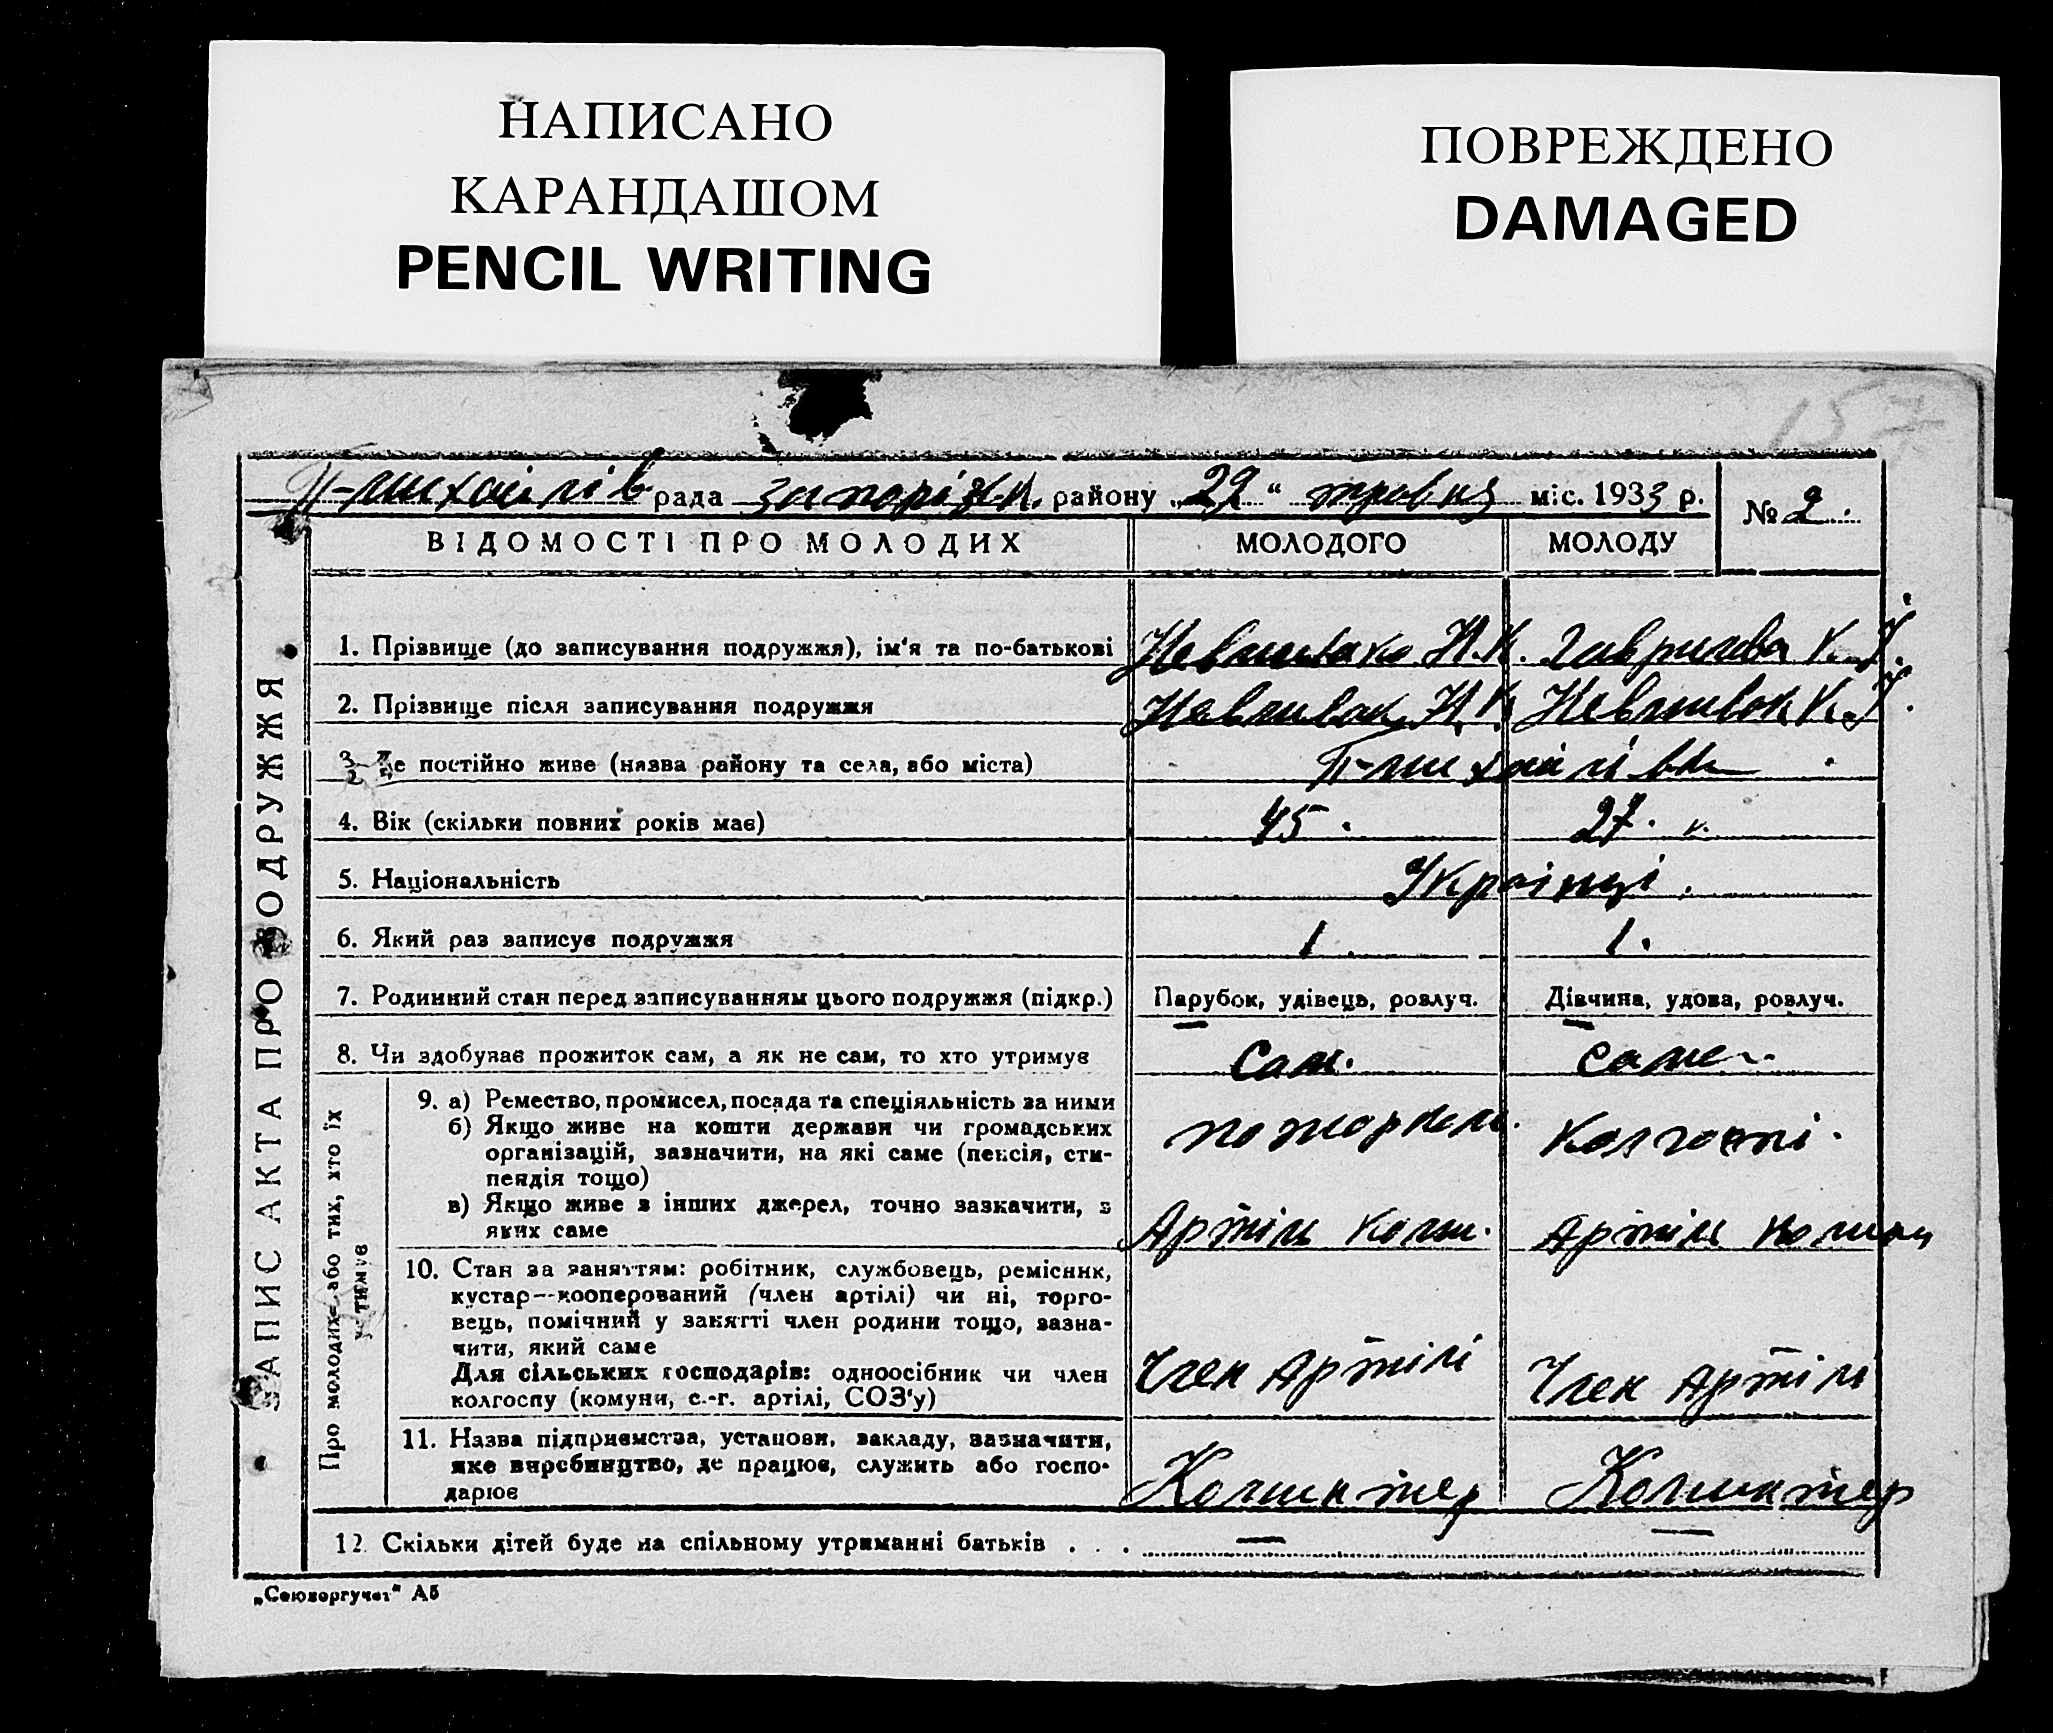 НАПИСАНО
КАРАНДАШОМ
PENCIL WRITING
ПОВРЕЖДЕНО
DAMAGED
157
П-михайлів рада запоріжк. району „29 “ травня міс. 1933 р.
№ 2.
ВІДОМОСТІ ПРО МОЛОДИХ МОЛОДОГО МОЛОДУ
ЗАПИС АКТА ПРО ПОДРУЖЖЯ
1. Прізвище (до записування подружжя), ім'я та по-батькові
2. Прізвище після записування подружжя
3. Де постійно живе (назва району та села, або міста) П-михайлівка
4. Вік (скільки повних років має) 45. 27.
5. Національність Українці.
6. Який раз записує подружжя 1. 1.
7. Родинний стан перед записуванням цього подружжя (підкр.) Парубок, удівець, розлуч. Дівчина, удова, розлуч.
8. Чи здобуває прожиток сам, а як не сам, то хто утримує Сам. Сама.
Про молодих або тих, хто їх утримує
9. а) Ремество, промисел, посада та спеціяльність за ними
б) Якщо живе на кошти держави чи громадських
організацій, зазначити, на які саме (пенсія, сти-
пендія тощо)
в) Якщо живе з інших джерел, точно зазначити, з
яких саме
колгоспі.
Артіль Артіль
10. Стан за заняттям: робітник, службовець, ремісник,
кустар—кооперований (член артілі) чи ні, торго-
вець, помічний у занятті член родини тощо, зазна-
чити, який саме
Для сільських господарів: одноосібник чи член
колгоспу (комуни, с.-г. артілі, СОЗ'у)
Член Артілі Член Артілі
11. Назва підприємства, установи, закладу, зазначити,
яке виробництво, де працює, служить або госпо-
дарює
Комінтер Комінтер
12. Скільки дітей буде на спільному утриманні батьків . . . — —
„Союзоргучет“ А5